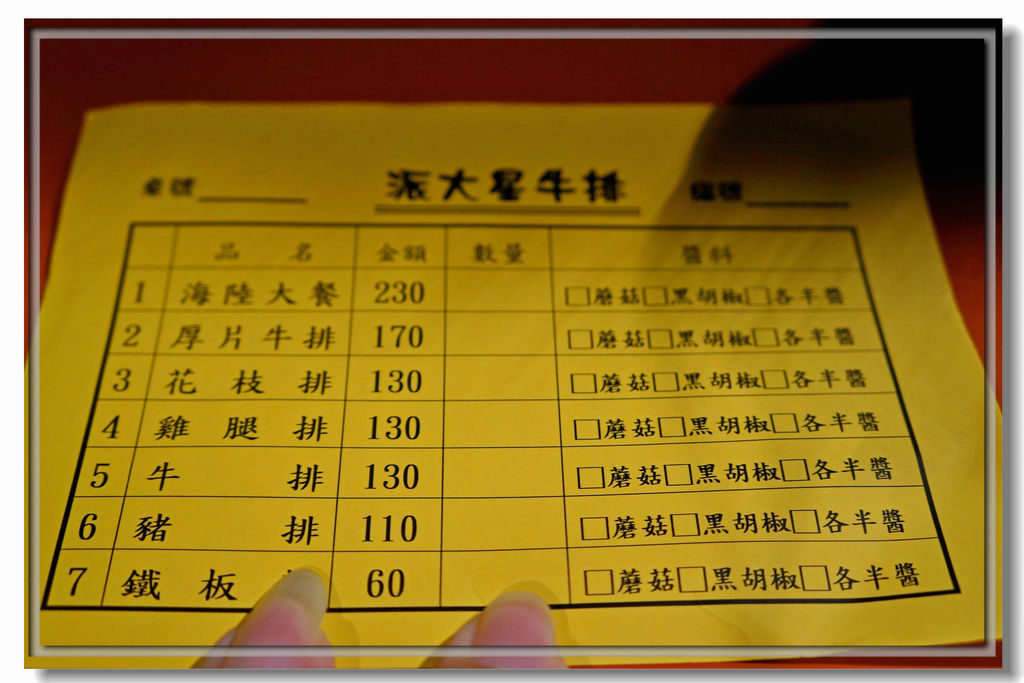 桌號______ 派大星牛排 編號______
品名 金額 數量 醬料
1 海陸大餐 230 □蘑菇□黑胡椒□各半醬
2 厚片牛排 170 □蘑菇□黑胡椒□各半醬
3 花枝排 130 □蘑菇□黑胡椒□各半醬
4 雞腿排 130 □蘑菇□黑胡椒□各半醬
5 牛排 130 □蘑菇□黑胡椒□各半醬
6 豬排 110 □蘑菇□黑胡椒□各半醬
7 鐵板 60 □蘑菇□黑胡椒□各半醬